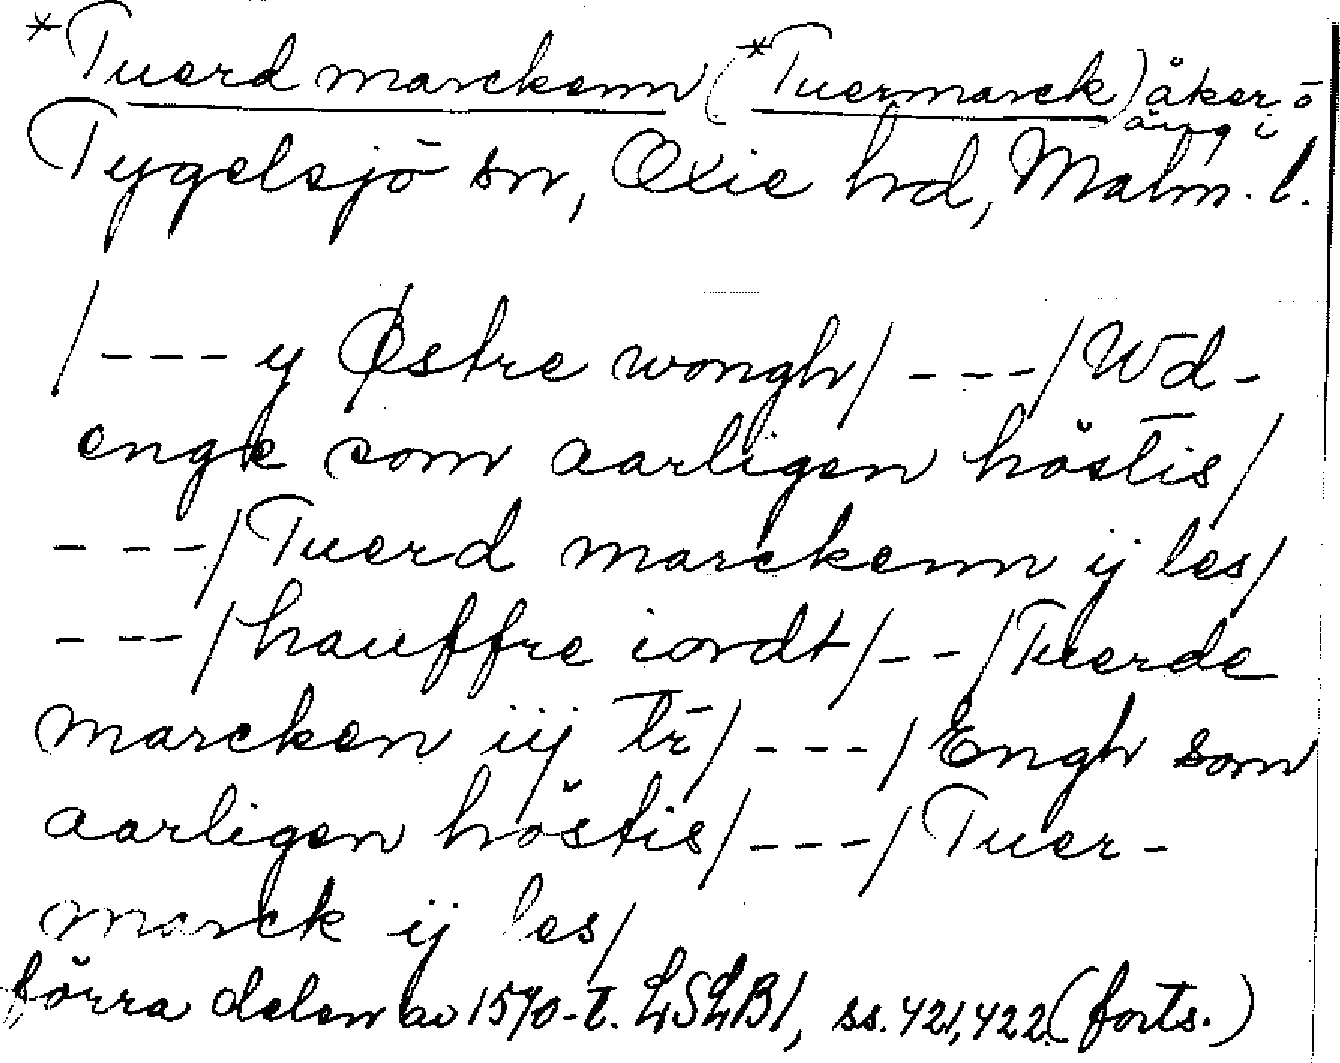 *Tuerd marckenn (*Tuermarck) åker o
äng i
Tygelsjö sn, Oxie hd, Malm. l.
/--- y Østre wongh/ ---/ Wd-
enge som aarligen höstis/
---/ Tuerd marckenn ij les/
---/ hauffre iordt/--/ Tuerde
marcken iij tr̄/ ---/ Engh som
aarligen höstis/ ---/ Tuer-
marck ij les/
förra delen av 1570-t. LSLB1, ss. 421, 422 (forts.)